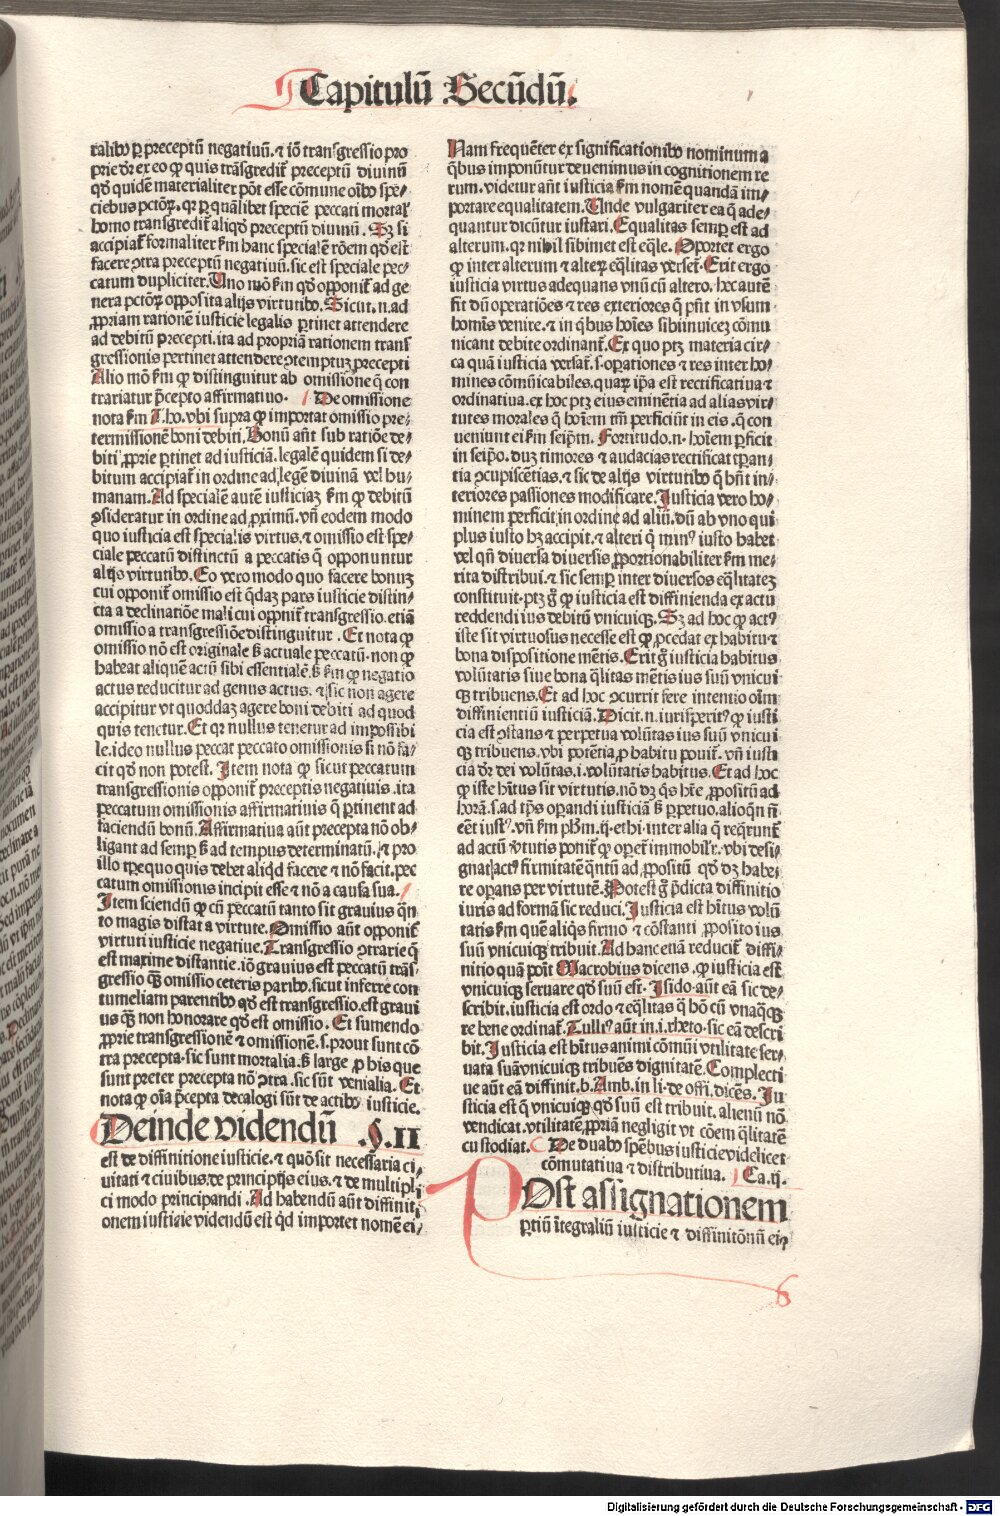 Capitulū Secūdū.
ralibꝰ ꝑ preceptū negatiuū. ⁊ iō transgressio pro
prie dr̄ ex eo ꝙ quis trāsgredit᷑ preceptū diuinū
qd̓ quidē materialiter pōt esse cōmune oībꝰ spe⸗
ciebus pctōꝝ. qꝛ ꝑ quālibet speciē peccati mortal̓
homo transgredit᷑ aliqd̓ preceptū diuinū. Sꝫ si
accipiat᷑ formaliter ẜm hanc specialē rōem qd̓ est
facere ꝯtra preceptū negatiuū. sic est speciale pec⸗
catum dupliciter. Uno mō ẜm qd̓ opponit᷑ ad ge
nera pctōꝝ opposita alijs virtutibꝰ. Sicut. n. ad
ꝓpriam rationē iusticie legalis ꝑtinet attendere
ad debitū precepti. ita ad propriā rationem trans
gressionis pertinet attendere ꝯtemptuꝫ precepti
Alio mō ẜm ꝙ distinguitur ab omissione q̄ con
trariatur p̄cepto affirmatiuo. De omissione
nota ẜm T. ho. vbi supra ꝙ importat omissio pre⸗
termissionē boni debiti. Bonū aūt sub ratiōe de⸗
biti ꝓprie ꝑtinet ad iusticiā. legalē quidem si de⸗
bitum accipiat᷑ in ordine ad legē diuinā vel hu⸗
manam. Ad specialē autē iusticiaꝫ ẜm ꝙ debitū
ꝯsideratur in ordine ad ꝓximū. vn̄ eodem modo
quo iusticia est specialis virtus. ⁊ omissio est spe⸗
ciale peccatū distinctū a peccatis q̄ opponuntur
alijs virtutibꝰ. Eo vero modo quo facere bonuꝫ
cui opponit᷑ omissio est q̄daꝫ pars iusticie distin⸗
cta a declinatiōe mali cui opponit᷑ transgressio. etiā
omissio a transgressiōe distinguitur. Et nota ꝙ
omissio nō est originale sꝫ actuale peccatū. non ꝙ
habeat aliquē actū sibi essentialē. sꝫ ẜm ꝙ negatio
actus reducitur ad genus actus. ⁊ sic non agere
accipitur vt quoddaꝫ agere boni debiti ad quod
quis tenetur. Et qꝛ nullus tenetur ad impossibi
le. ideo nullus peccat peccato omissionis si nō fa⸗
cit qd̓ non potest. Item nota ꝙ sicut peccatum
transgressionis opponit᷑ preceptis negatiuis. ita
peccatum omissionis affirmatiuis q̄ ꝑtinent ad
faciendū bonū. Affirmatiua aūt precepta nō ob⸗
ligant ad semꝑ sꝫ ad tempus determinatū. ⁊ pro
illo tꝑe quo quis debet aliqd̓ facere ⁊ nō facit. pec
catum omissionis incipit esse ⁊ nō a causa sua.
Item sciendū ꝙ cū peccatū tanto sit grauius q̄n
to magis distat a virtute. Omissio aūt opponit᷑
virtuti iusticie negatiue. Transgressio ꝯtrarie q̄
est maxime distantie. iō grauius est peccatū trās⸗
gressio qͣꝫ omissio ceteris paribꝰ. sicut inferre con
tumeliam parentibꝰ qd̓ est transgressio. est graui
us qͣꝫ non honorare qd̓ est omissio. Et sumendo
ꝓprie transgressionē ⁊ omissionē. s. prout sunt cō
tra precepta. sic sunt mortalia. sꝫ large ꝓ his que
sunt preter precepta nō ꝯtra. sic sūt venialia. Et
nota ꝙ oīa p̄cepta decalogi sūt de actibꝰ iusticie.
Deinde videndū .§. II
est de diffinitione iusticie. ⁊ quō sit necessaria ci⸗
uitati ⁊ ciuibus. de principijs eius. ⁊ de multipl̓
ci modo principandi. Ad habendū aūt diffiniti⸗
onem iusticie videndū est qd̓ importet nomē ei⸗
Nam frequēter ex significationibꝰ nominum a
q̄bus imponūtur deuenimus in cognitionem re
rum. videtur aūt iusticia ẜm nomē quandā im⸗
portare equalitatem. Unde vulgariter ea q̄ ade⸗
quantur dicūtur iustari. Equalitas semꝑ est ad
alterum. qꝛ nihil sibimet est eq̄le. Oportet ergo
ꝙ inter alterum ⁊ alteꝝ eq̄litas verset᷑. Erit ergo
iusticia virtus adequans vnū cū altero. hec autē
fit dū operatiōes ⁊ res exteriores q̄ pn̄t in vsum
homīs venire. ⁊ in q̄bus hoīes sibiinuiceꝫ cōmu
nicant debite ordinant᷑. Ex quo ptꝫ materia cir⸗
ca quā iusticia versat᷑. s. oꝑationes ⁊ res inter ho⸗
mines cōmūicabiles. quaꝝ ip̄a est rectificatiua ⁊
ordinatiua. ex hoc ptꝫ eius eminētia ad alias vir⸗
tutes morales q̄ hoīem tm̄ perficiūt in eis. q̄ con
ueniunt ei ẜm seip̄m. Fortitudo. n. hoīem ꝑficit
in seip̄o. duꝫ timores ⁊ audacias rectificat tꝑan⸗
tia ꝯcupiscētias. ⁊ sic de alijs virtutibꝰ q̄ hn̄t in⸗
teriores passiones modificare. Iusticia vero ho⸗
minem perficit in ordine ad aliū. dū ab vno qui
plus iusto hꝫ accipit. ⁊ alteri q̄ minꝰ iusto habet
vel qn̄ diuersa diuersis ꝓportionabiliter ẜm me⸗
rita distribui. ⁊ sic semꝑ inter diuersos eq̄litateꝫ
constituit. ptꝫ gͦ ꝙ iusticia est diffinienda ex actu
reddendi ius debitū vnicuiqꝫ. Sꝫ ad hoc ꝙ actꝰ
iste sit virtuosus necesse est ꝙ ꝓcedat ex habitu ⁊
bona dispositione mētis. Erit gͦ iusticia habitus
volūtatis siue bona q̄litas mētis ius suū vnicui
qꝫ tribuens. Et ad hoc ꝯcurrit fere intentio oīm
diffinientiū iusticiā. Dicit. n. iurisperitꝰ ꝙ iusti
cia est ꝯstans ⁊ perpetua volūtas ius suū vnicui
qꝫ tribuens. vbi potētia ꝓ habitu ponit᷑. vn̄ iusti
cia dr̄ dei volūtas. i. volūtatis habitus. Et ad hoc
ꝙ iste hītus sit virtutis. nō dꝫ q̄s hr̄e ꝓpositū ad
horā. s. ad tp̄s oꝑandi iusticiā sꝫ ꝑpetuo. alioqn̄ n̄
eēt iustꝰ. vn̄ ẜm ph̄m. ij. ethi. inter alia q̄ req̄runt᷑
ad actū v̓tutis ponit᷑ ꝙ oꝑet᷑ immobilr̄. vbi desi⸗
gnat᷑ actꝰ firmitatē q̄ntū ad ꝓpositū qd̓ dꝫ habe⸗
re oꝑans per virtutē. Potest gͦ p̄dicta diffinitio
iuris ad formā sic reduci. Iusticia est hītus volū
tatis ẜm quē aliq̄s firmo ⁊ cōstanti ꝓposito ius
suū vnicuiqꝫ tribuit. Ad hanc etiā reducit᷑ diffi⸗
nitio quā poīt Macrobius dicens. ꝙ iusticia est
vnicuiqꝫ seruare qd̓ suū est. Isido. aūt eā sic de⸗
scribit. iusticia est ordo ⁊ eq̄litas q̄ hō cū vnaq̄qꝫ
re bene ordinat᷑. Tulliꝰ aūt in. i. rheto. sic eā descri
bit. Iusticia est hītus animi cōmūi vtilitate ser⸗
uata suā vnicuiqꝫ tribuēs dignitatē. Complecti
ue aūt eā diffinit. b. Amb. in li. de offi. dicēs. Iu
sticia est q̄ vnicuiqꝫ qd̓ suū est tribuit. alienū nō
vendicat. vtilitatē ꝓpriā negligit vt cōem q̄litatē
custodiat. De duabꝰ spēbus iusticie videlicet
cōmutatiua ⁊ distributiua. Ca. ij.
Post assignationem
ꝑtiū ītegraliū iusticie ⁊ diffinitōnū eiꝰ
Digitalisierung gefördert durch die Deutsche Forschungsgemeinschaft - DFG